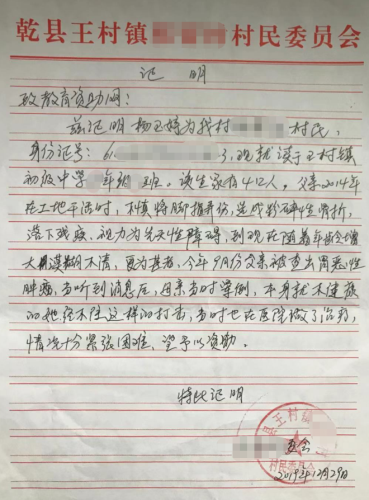 乾县王村镇 村民委员会
证 明
致教育资助网:
兹证明杨玉婷为我村 村民,
身份证号:6. 3,现就读于王村镇
初级中学 年级 班。该生家有4口人,父亲2014年
在工地干活时,不慎将脚指弄伤,造成粉碎性骨折,
落下残疾,视力为先天性障碍,到现在随着年龄增
大模糊不清,更为甚者,今年9月份父亲被查出胃恶性
肿瘤,当听到消息后,母亲当时晕倒,本身就不健康
的她经不住这样的打击,当时也在医院做了治疗,
情况十分紧张困难,望予以资助。
特此证明
县王村镇
村民委员会
委会
2019年12月29日